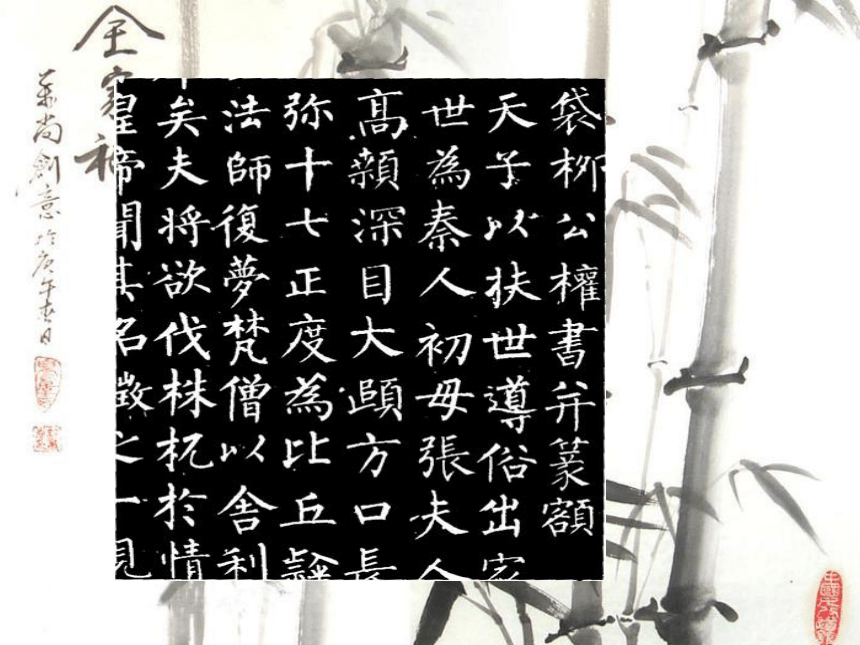 袋柳公權書并篆額
天子以扶世導俗出家
世為秦人初母張夫人
高顙深目大頤方口長
弥十七正度為比丘隸
法師復夢梵僧以舍利
矣夫将欲伐株杌於情
皇帝聞其名徵之一見
全家福
尚創意於庚午春日